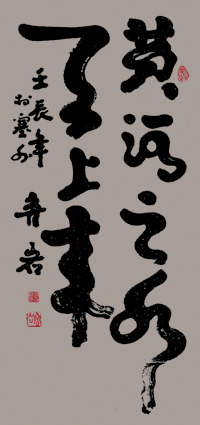 黄河之水
天上来
壬辰年
于塞外
弇岩